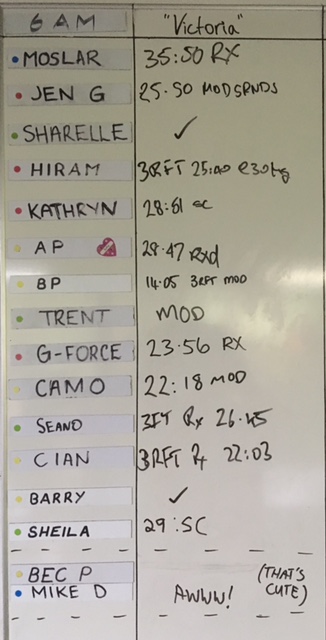 6 AM "Victoria"
MOSLAR 35:50 RX
JEN G 25:50 MODSRNDS
SHARELLE ✓
HIRAM 3RFT 25:00 @30kg
KATHRYN 28:51 SC
AP 28:47 RXd
BP 14:05 3RFT MOD
TRENT MOD
G-FORCE 23:56 RX
CAMO 22:18 MOD
SEANO 3FT RX 26:45
CIAN 3RFT RX 22:03
BARRY ✓
SHEILA 29:SC
BEC P (THAT'S
MIKE D AWWW! CUTE)